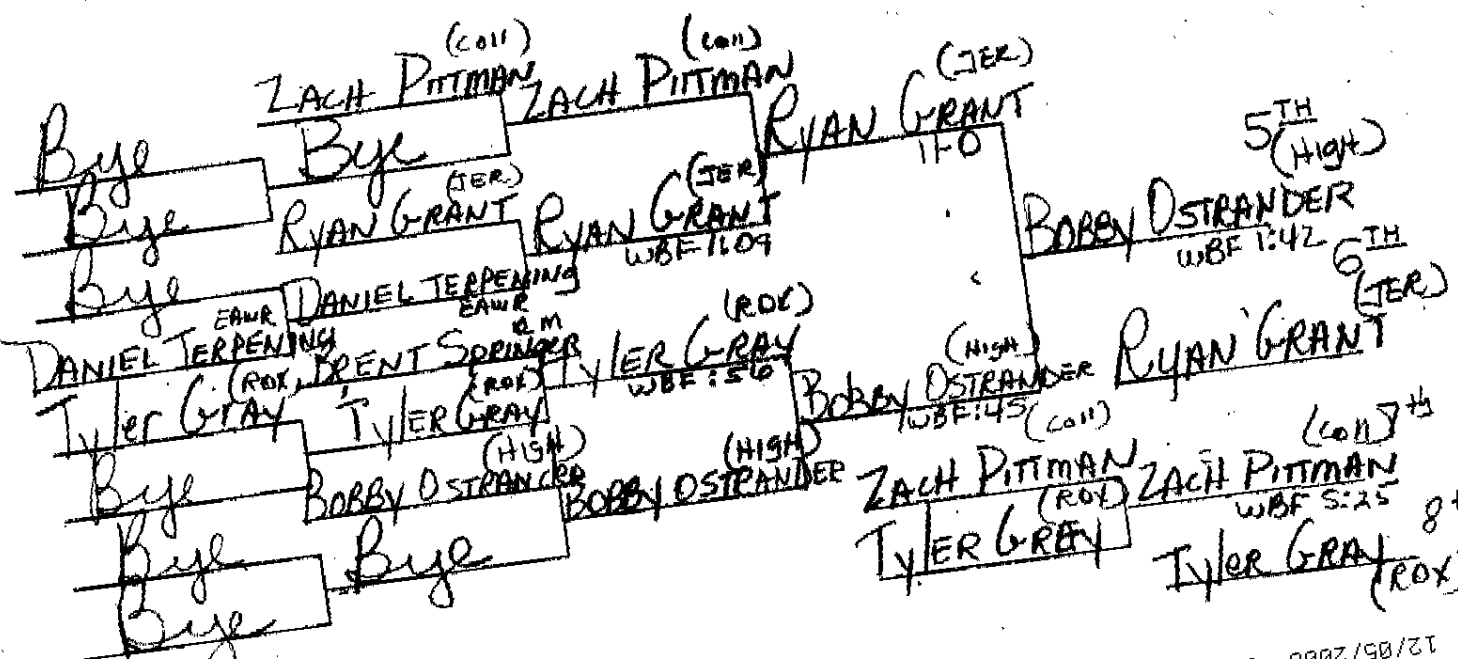 Bye
Bye
Bye
DANIEL TERPENING EAWR
Tyler Gray (ROX)
Bye
Bye
Bye
ZACH PITTMAN (COLL)
Bye
RYAN GRANT (JER.)
DANIEL TERPENING EAWR
BRENT SPRINGER
TYLER GRAY (ROX)
BOBBY OSTRANDER (HIGH)
Bye
ZACH PITTMAN (COLL)
RYAN GRANT (JER)
WBF 1:09
TYLER GRAY (ROX)
WBF :56
BOBBY OSTRANDER (HIGH)
RYAN GRANT (JER.)
11-0
BOBBY OSTRANDER (HIGH)
WBF :45
5TH
(HIGH)
BOBBY OSTRANDER
WBF 1:42
6TH
(JER)
RYAN GRANT
ZACH PITTMAN (COLL)
TYLER GREY (ROX)
(COLL) 7th
ZACH PITTMAN
WBF 5:25
TYLER GRAY
(ROX)